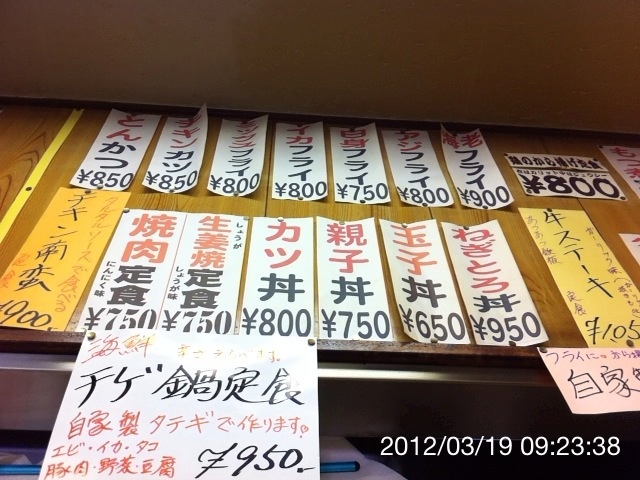 とんかつ
¥850
チキンカツ
¥850
フライ
¥800
イカフライ
¥800
白身フライ
¥750
アジフライ
¥800
海老フライ
¥900
鶏のから揚げ定食
¥800
タルタルソースで食べる
チキン南蛮
¥900
焼肉定食
にんにく味
¥750
しょうが
生姜焼定食
しょうが味
¥750
カツ丼
¥800
親子丼
¥750
玉子丼
¥650
ねぎとろ丼
¥950
牛ステーキ
あつあつ鉄板
定食
¥1,05
海鮮
チゲ鍋定食
自家製タテギで作ります。
エビ・イカ・タコ
豚肉・野菜・豆腐
¥950.-
フライに
自家
2012/03/19 09:23:38